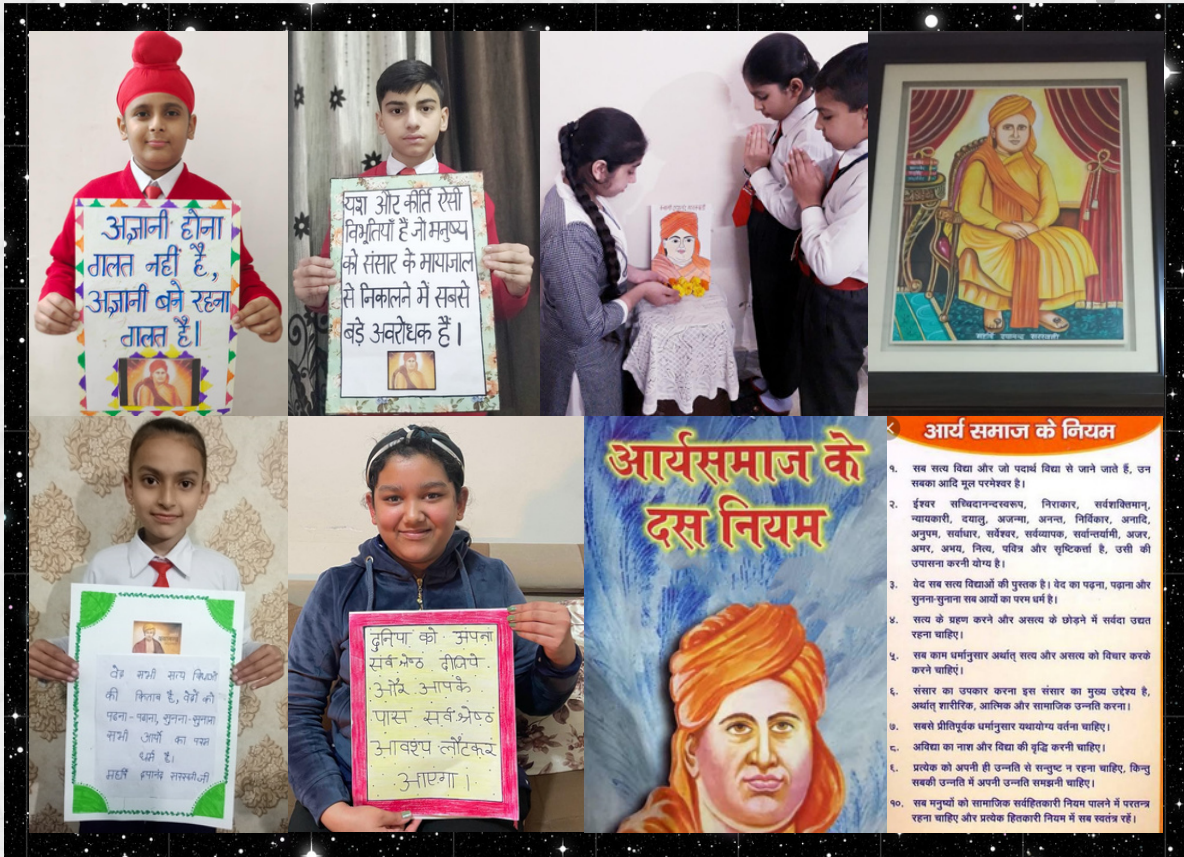 अज्ञानी होना
गलत नहीं है,
अज्ञानी बने रहना
गलत है।
यश और कीर्ति ऐसी
विभूतियाँ हैं जो मनुष्य
को संसार के मायाजाल
से निकालने में सबसे
बड़े अवरोधक हैं।
महर्षि दयानन्द सरस्वती
वेद सभी सत्य विधाओं
की किताब है, वेदों को
पढना-पढाना, सुनना-सुनाना
सभी आर्यो का परम
धर्म है।
महर्षि दयानंद सरस्वती जी
दुनिया को अपना
सर्वश्रेष्ठ दीजिये
और आपके
पास सर्वश्रेष्ठ
आवश्य लौटकर
आएगा।
आर्यसमाज के
दस नियम
आर्य समाज के नियम
१. सब सत्य विद्या और जो पदार्थ विद्या से जाने जाते हैं, उन
सबका आदि मूल परमेश्वर है।
२. ईश्वर सच्चिदानन्दस्वरूप, निराकार, सर्वशक्तिमान्,
न्यायकारी, दयालु, अजन्मा, अनन्त, निर्विकार, अनादि,
अनुपम, सर्वाधार, सर्वेश्वर, सर्वव्यापक, सर्वान्तर्यामी, अजर,
अमर, अभय, नित्य, पवित्र और सृष्टिकर्त्ता है, उसी की
उपासना करनी योग्य है।
३. वेद सब सत्य विद्याओं की पुस्तक है। वेद का पढ़ना, पढ़ाना और
सुनना-सुनाना सब आर्यों का परम धर्म है।
४. सत्य के ग्रहण करने और असत्य के छोड़ने में सर्वदा उद्यत
रहना चाहिए।
५. सब काम धर्मानुसार अर्थात् सत्य और असत्य को विचार करके
करने चाहिएं।
६. संसार का उपकार करना इस संसार का मुख्य उद्देश्य है,
अर्थात् शारीरिक, आत्मिक और सामाजिक उन्नति करना।
७. सबसे प्रीतिपूर्वक धर्मानुसार यथायोग्य वर्तना चाहिए।
८. अविद्या का नाश और विद्या की वृद्धि करनी चाहिए।
९. प्रत्येक को अपनी ही उन्नति से सन्तुष्ट न रहना चाहिए, किन्तु
सबकी उन्नति में अपनी उन्नति समझनी चाहिए।
१०. सब मनुष्यों को सामाजिक सर्वहितकारी नियम पालने में परतन्त्र
रहना चाहिए और प्रत्येक हितकारी नियम में सब स्वतंत्र रहें।